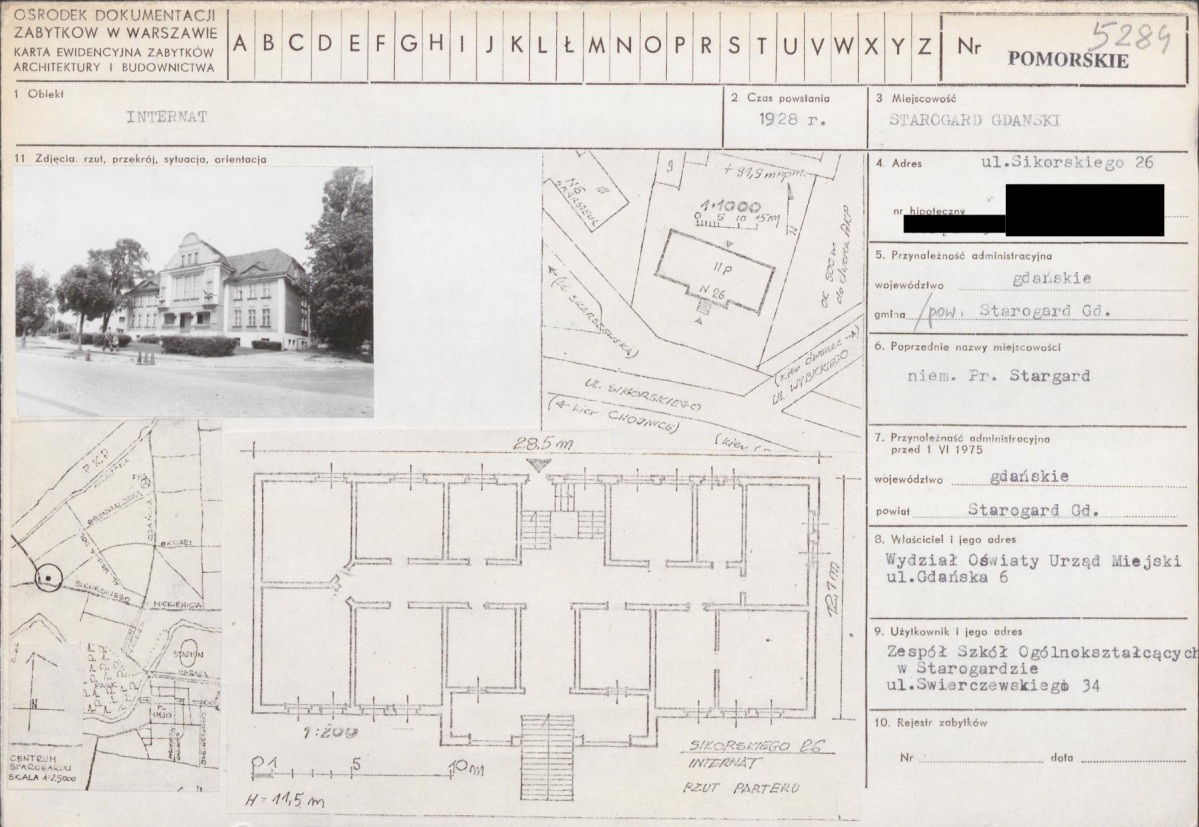 OŚRODEK DOKUMENTACJI
ZABYTKÓW W WARSZAWIE
KARTA EWIDENCYJNA ZABYTKÓW
ARCHITEKTURY I BUDOWNICTWA
A B C D E F G H I J K L Ł M N O P R S T U V W X Y Z
Nr
5284
POMORSKIE
1 Obiekt
INTERNAT
2 Czas powstania
1928 r.
3 Miejscowość
STAROGARD GDAŃSKI
11 Zdjęcia. rzut, przekrój, sytuacja, orientacja
4. Adres ul.Sikorskiego 26
nr hipoteczny
5. Przynależność administracyjna
województwo gdańskie
gmina /pow. Starogard Gd.
6. Poprzednie nazwy miejscowości
niem. Pr. Stargard
7. Przynależność administracyjna
przed 1 VI 1975
województwo gdańskie
powiat Starogard Gd.
8. Właściciel i jego adres
Wydział Oświaty Urząd Miejski
ul.Gdańska 6
9. Użytkownik i jego adres
Zespół Szkół Ogólnokształcących
w Starogardzie
ul.Swierczewskiego 34
10. Rejestr zabytków
Nr data
g
+ 91,9 m npm.
1:1000
0 5 10 15m
N
III
II p
N 26
ok. 500 m
do dworca PKP
(UL. SKARSZEWSKA)
UL. SIKORSKIEGO
(← kier CHOJNICE)
(kier dworzec →)
UL. WYBICKIEGO
(kier
PKP
SIKORSKIEGO
MICKIEWICZA
STADION
PARK
N
CENTRUM
STAROGARDU
SKALA 1:25000
28,5 m
12,7 m
1:200
0 1 5 10m
H = 11,5 m
SIKORSKIEGO 26
INTERNAT
RZUT PARTERU